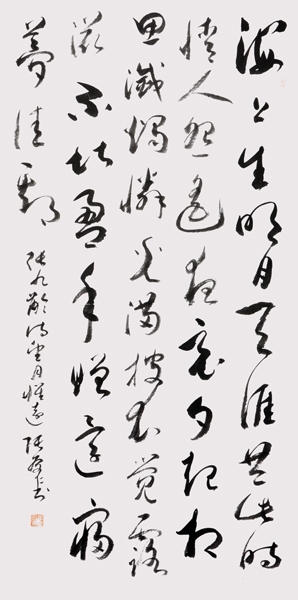 海上生明月天涯共此时
情人怨遥夜竟夕起相
思灭烛怜光满披衣觉露
滋不堪盈手赠还寝
梦佳期
张九龄诗望月怀远